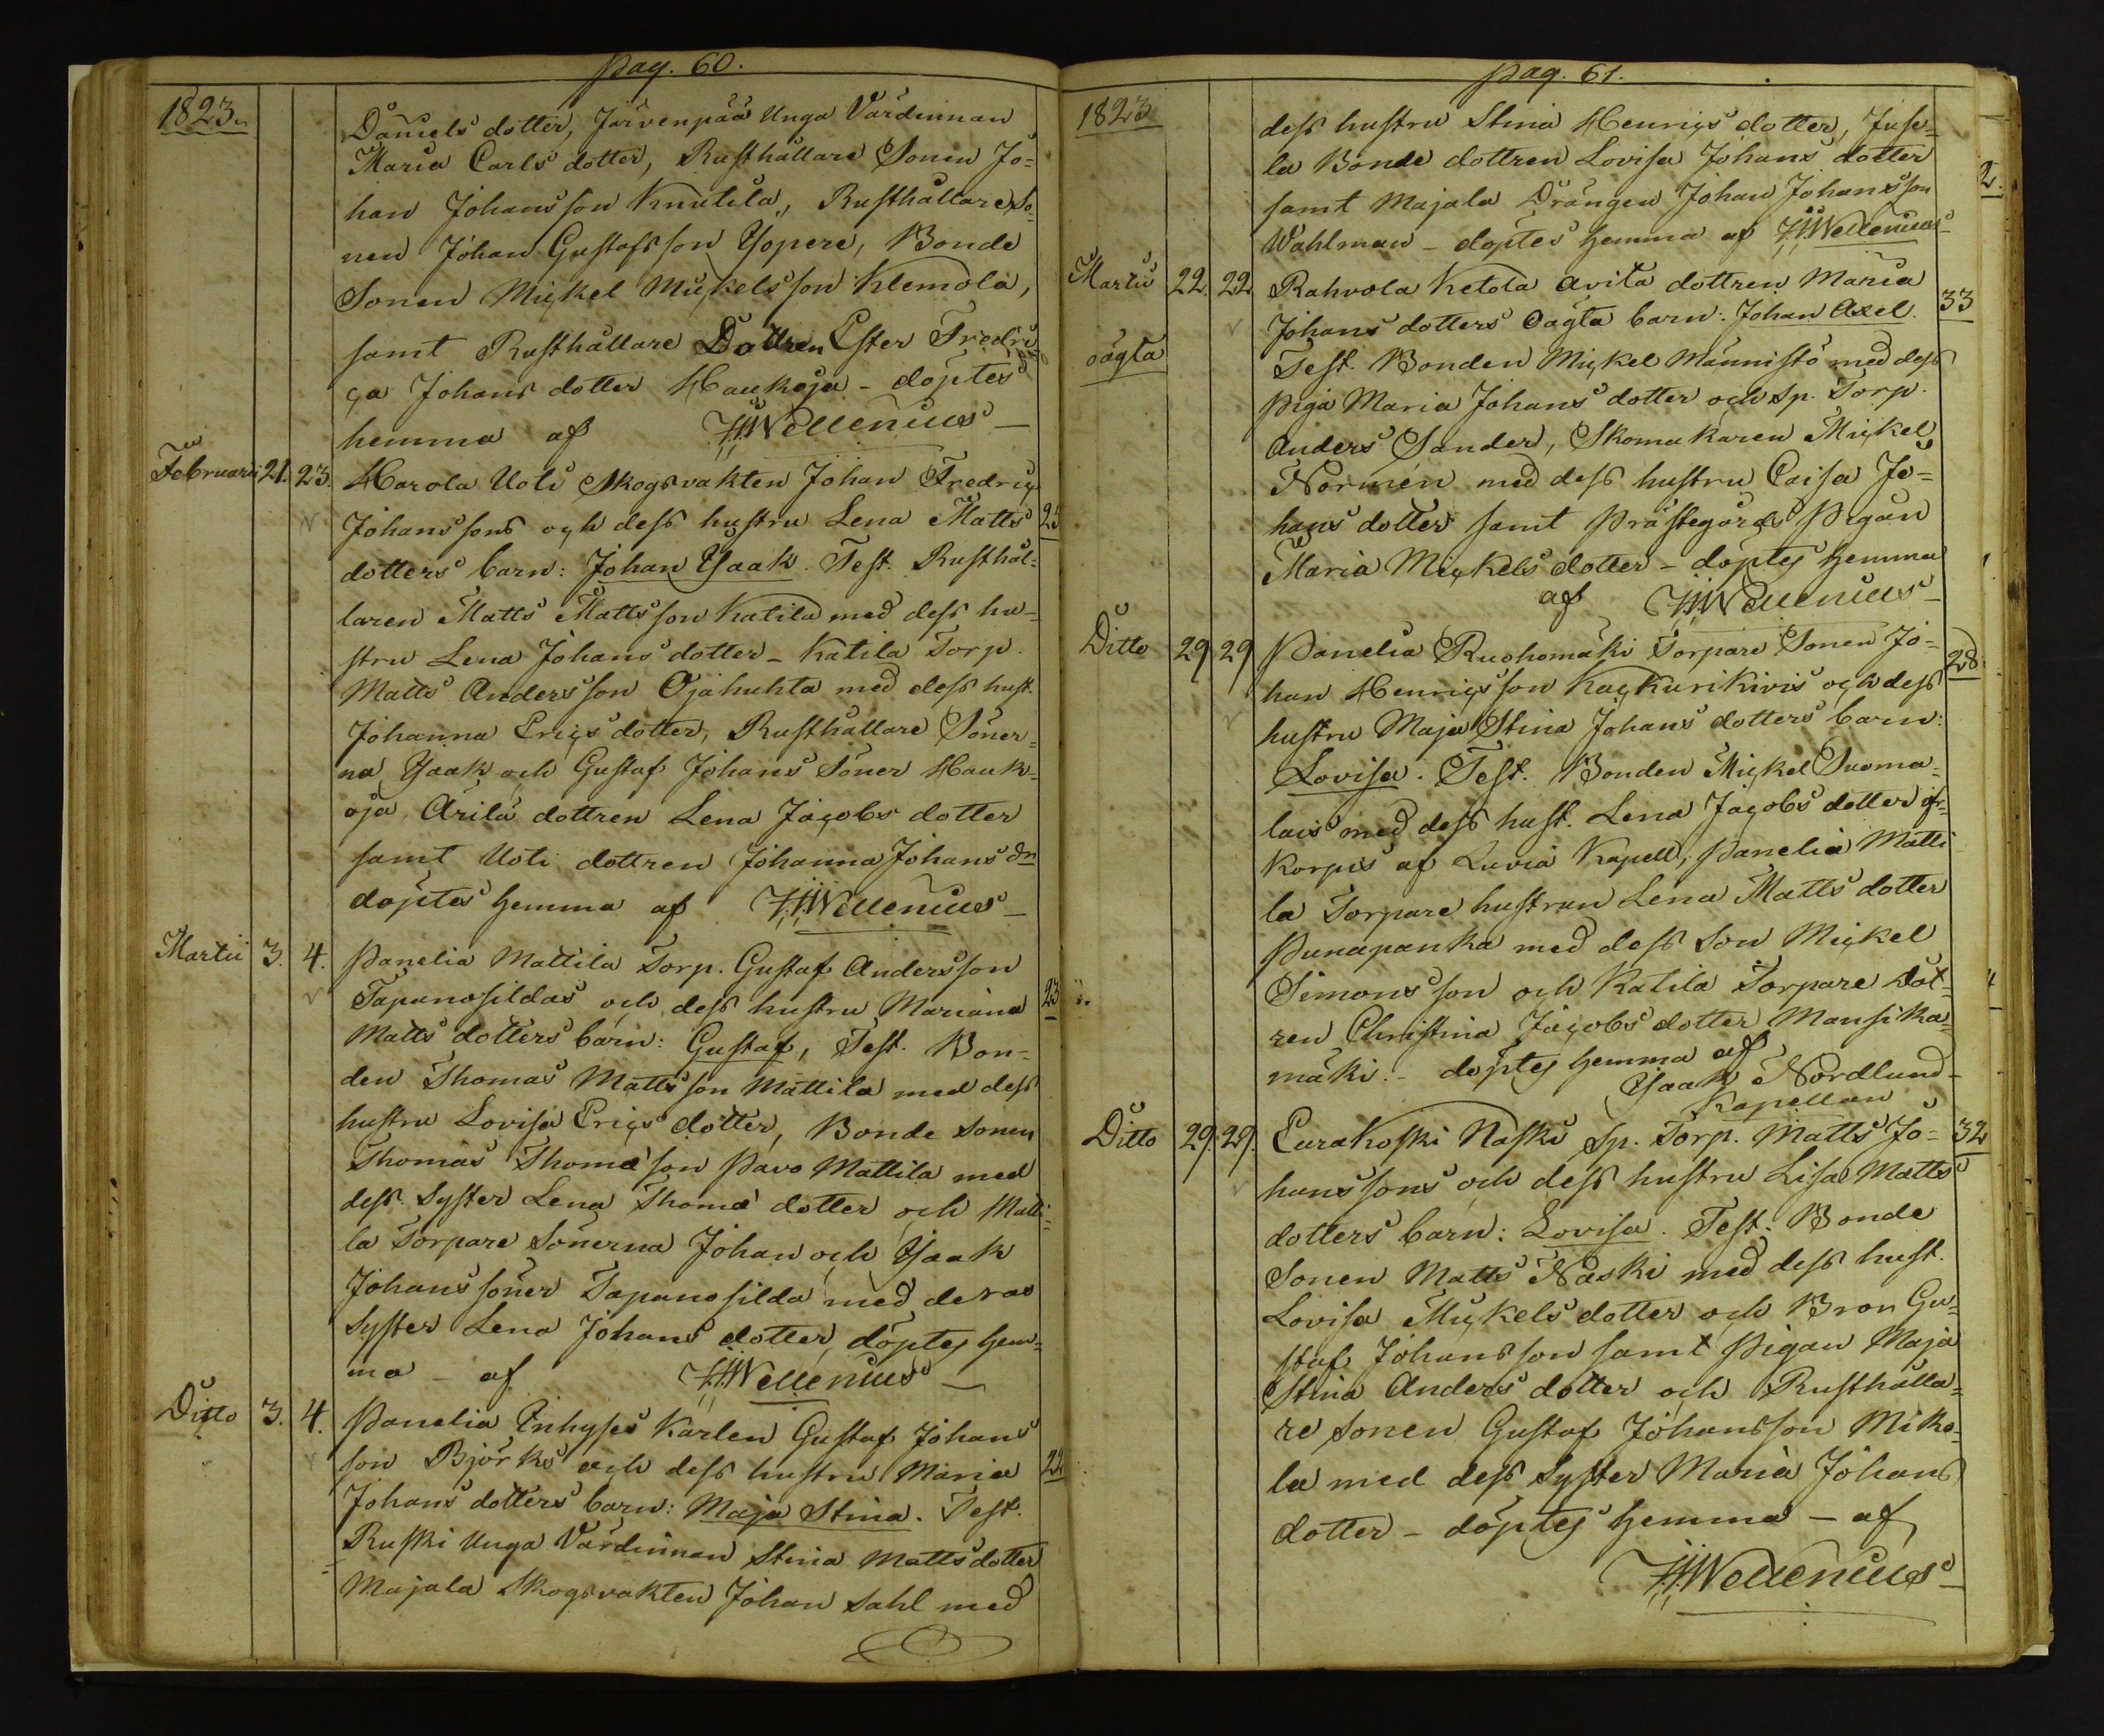 pag. 60.
1823.
Daniels dotter, Järvenpää Unga Värdinnan
Maria Carls dotter, Rusthållare Sonen Jo=
han Johansson Knutila, Rusthållare So=
nen Johan Gustafsson Yopere, Bonde
Sonen Mickel Mickelsson Klemola,
samt Rusthållare Dottren Ester Fredri
ca Johans dotter Haukoja - döptes
hemma af HWellenius
Februarii 21. 23. Harola Uoti Skogsvakten Johan Fredric
Johanssons och dess hustru Lena Matts 25
dotters barn: Johan Isaak. Test. Rusthål=
laren Matts Mattsson Katila med dess hu=
stru Lena Johans dotter - Katila Torp.
Matts Andersson Ojahuhta med dess hust.
Johanna Erics dotter, Rusthållare Söner=
na Isaak och Gustaf Johans Söner Hauk=
oja Arila dottren Lena Jacobs dotter
samt Uoti dottren Johanna Johans dr
döptes hemma af HWellenius
Martii 3. 4. Panelia Mattila Torp. Gustaf Andersson
Tapanosildas och dess hustru Mariana 23
Matts dotters barn: Gustaf, Test. Bon=
den Thomas Mattsson Mattila med dess
hustru Lovisa Erics dotter, Bonde Sonen
Thomas Thomæson Pavo Mattila med
dess Syster Lena Thomæ dotter och Matti=
la Torpare Sönerna Johan och Isaak
Johans söner Tapanosilda med deras
Syster Lena Johans dotter, döptes hem=
ma - af HWellenius
Ditto 3. 4. Panelia Inhyses Karlen Gustaf Johans
son Björks och dess hustru Maria 22
Johans dotters barn: Maja Stina. Test.
Ruski Unga Värdinnan Stina Matts dotter
Majala Skogsvakten Johan Sahl med
pag. 61.
1823
dess hustru Stina Henrics dotter, Juse=
la Bonde dottren Lovisa Johans dotter
samt Majala Drängen Johan Johansson
Wahlman - döptes hemma af HWellenius
Martii 22. 22 Rahvola Ketola avita dottren Maria 33
Johans dotters Oägta barn: Johan Axel.
oägta Test. Bonden Mickel Männistö med dess
Piga Maria Johans dotter och Sp. Torp.
Anders Sander, Skomakaren Mickel
Normen med dess hustru Caisa Jo=
hans dotter samt Prästegårds Pigan
Maria Mickels dotter - döptes hemma
af HWellenius
Ditto 29 29 Panelia Ruohomäki Torpare Sonen Jo= 28.
han Henricsson Kackurikivis och dess
hustru Maja Stina Johans dotters barn:
Lovisa. Test. Bonden Mickel Suoma=
lais med dess hust. Lena Jacobs dotter
Korpis af Luvia Kapell, Panelia Matti
la Torpare hustrun Lena Matts dotter
Punapanka med dess Son Mickel
Simonsson och Katila Torpare Dot=
ren Christina Jacobs dotter Mansika=
mäki. - döptes hemma af
Isaak Nordlund
Kapellan
Ditto 29. 29. Eurakoski Naski Sp. Torp. Matts Jo= 32
hanssons och dess hustru Lisa Matts
dotters barn: Lovisa. Test. Bonde
Sonen Matts Naski med dess hust.
Lovisa Mickels dotter och Bron Gu=
staf Johansson samt Pigan Maja
Stina Anders dotter och Rusthålla=
re Sonen Gustaf Johansson Miko=
la med dess Syster Maria Johans
dotter - döptes hemma - af
HWellenius
2.